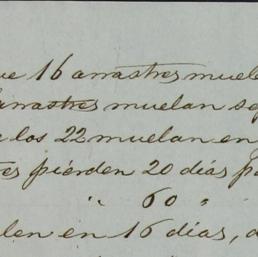 ue 16 arrastres muele
arrastres muelan
los 22 muelan en
res pierden 20 dias p
" 60 "
len en 16 dias,